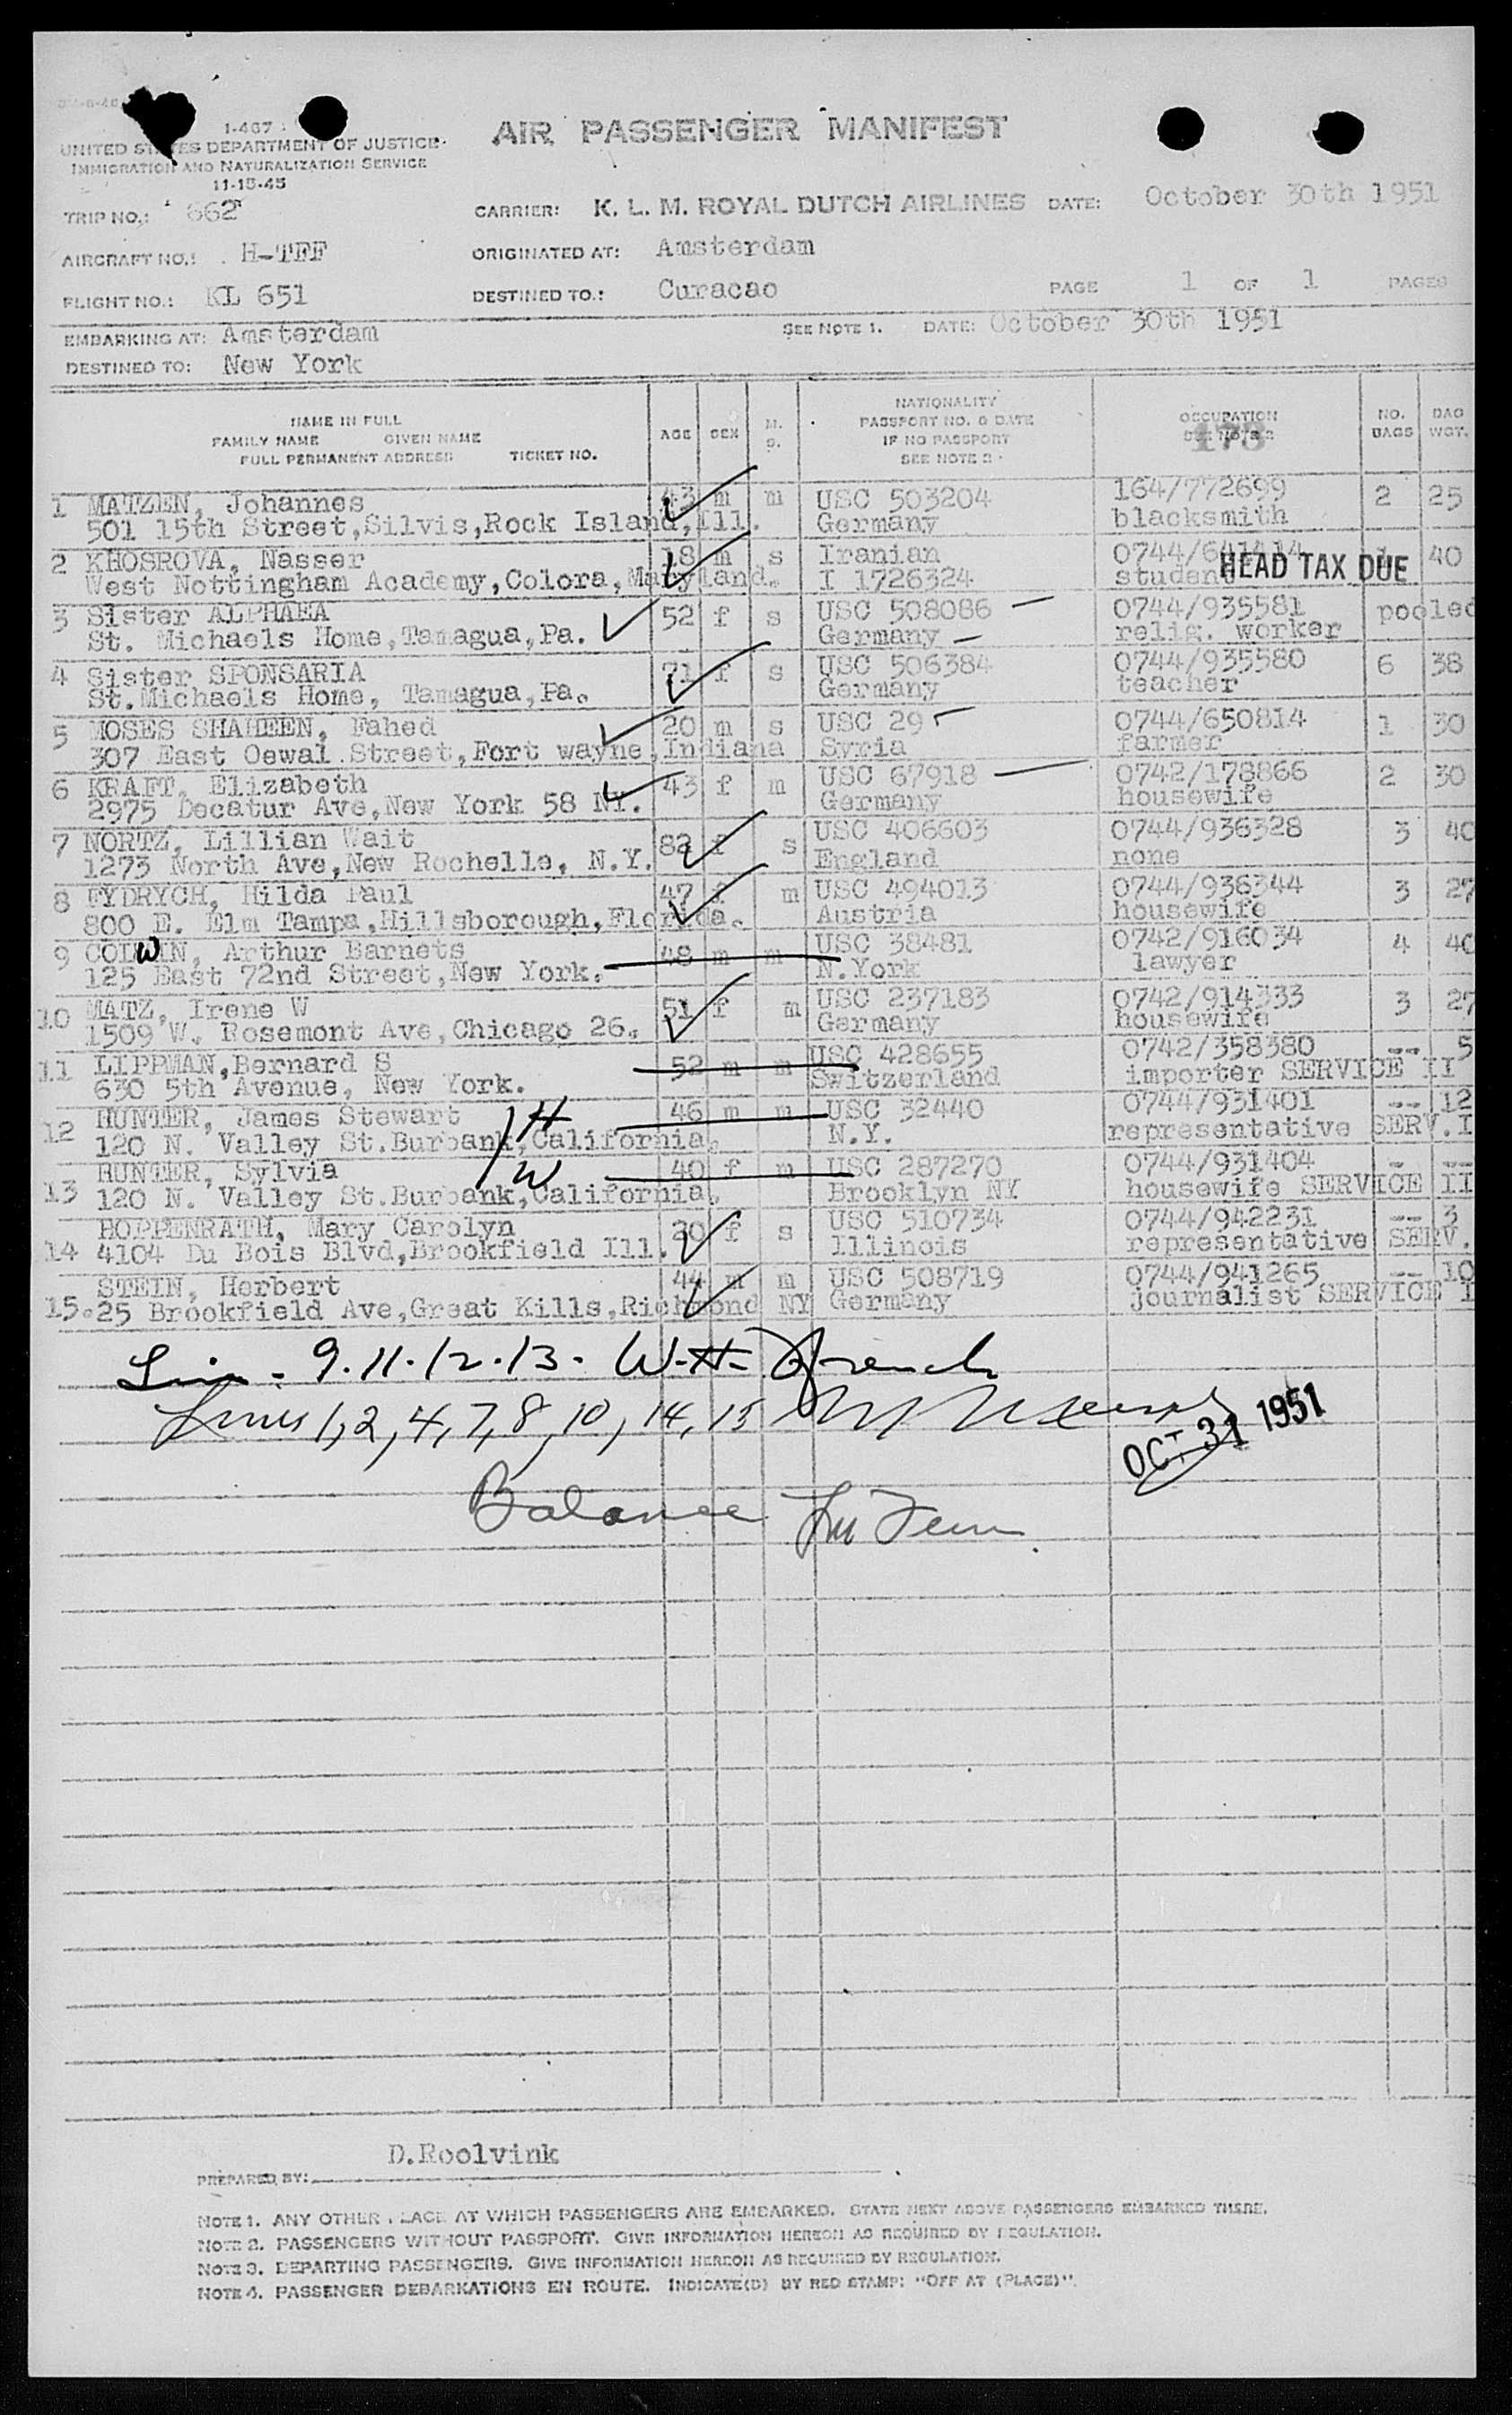 1-467
UNITED STATES DEPARTMENT OF JUSTICE
IMMIGRATION AND NATURALIZATION SERVICE
11-15-45
AIR PASSENGER MANIFEST
TRIP NO.: 662
CARRIER: K. L. M. ROYAL DUTCH AIRLINES DATE: October 30th 1951
AIRCRAFT NO.: H-TFF
ORIGINATED AT: Amsterdam
FLIGHT NO.: KL 651
DESTINED TO.: Curacao
PAGE 1 OF 1 PAGES
EMBARKING AT: Amsterdam
SEE NOTE 1. DATE: October 30th 1951
DESTINED TO: New York
NAME IN FULL
FAMILY NAME GIVEN NAME
FULL PERMANENT ADDRESS TICKET NO.
AGE SEX M. S.
NATIONALITY
PASSPORT NO. & DATE
IF NO PASSPORT
SEE NOTE 2
OCCUPATION
173
NO. BAGS
BAG WGT.
1 MATZEN, Johannes 43 m m USC 503204 164/772699 2 25
501 15th Street,Silvis,Rock Island,Ill. Germany blacksmith
2 KHOSROVA, Nasser 18 m s Iranian 0744/641414 1 40
West Nottingham Academy,Colora,Maryland. I 1726324 student HEAD TAX DUE
3 Sister ALPHAEA 52 f s USC 508086 0744/935581 pooled
St. Michaels Home,Tamagua,Pa. Germany relig. worker
4 Sister SPONSARIA 71 f s USC 506384 0744/935580 6 38
St.Michaels Home, Tamagua,Pa. Germany teacher
5 MOSES SHAHEEN, Fahed 20 m s USC 29 0744/650814 1 30
307 East Oewal Street,Fort wayne,Indiana Syria farmer
6 KRAFT, Elizabeth 43 f m USC 67918 0742/178866 2 30
2975 Decatur Ave,New York 58 NY. Germany housewife
7 NORTZ, Lillian Wait 82 f s USC 406603 0744/936328 3 40
1273 North Ave,New Rochelle, N.Y. England none
8 FYDRYCH, Hilda Paul 47 f m USC 494013 0744/936344 3 27
800 E. Elm Tampa,Hillsborough,Florida. Austria housewife
9 COLWIN, Arthur Barnets 48 m m USC 38481 0742/916034 4 40
125 East 72nd Street,New York. N.York lawyer
10 MATZ, Irene W 51 f m USC 237183 0742/914333 3 27
1509 W. Rosemont Ave,Chicago 26. Germany housewife
11 LIPPMAN,Bernard S 52 m m USC 428655 0742/358380 -- 5
630 5th Avenue, New York. Switzerland importer SERVICE II
12 HUNTER, James Stewart H 46 m m USC 32440 0744/931401 -- 12
120 N. Valley St.Burbank,California. N.Y. representative SERV.I
13 HUNTER, Sylvia W 40 f m USC 287270 0744/931404 -- --
120 N. Valley St.Burbank,California. Brooklyn NY housewife SERVICE II
HOPPENRATH, Mary Carolyn 30 f s USC 510734 0744/942231 -- 3
14 4104 Du Bois Blvd,Brookfield Ill. Illinois representative SERV.
STEIN, Herbert 44 m m USC 508719 0744/941265 -- 10
15. 25 Brookfield Ave,Great Kills,Richmond NY Germany journalist SERVICE I
9.11.12.13. W.H. French
Lines 1,2,4,7,8,10,14,15
OCT 31 1951
Balance
D.Roolvink
PREPARED BY:
NOTE 1. ANY OTHER PLACE AT WHICH PASSENGERS ARE EMBARKED. STATE NEXT ABOVE PASSENGERS EMBARKED THERE.
NOTE 2. PASSENGERS WITHOUT PASSPORT. GIVE INFORMATION HEREON AS REQUIRED BY REGULATION.
NOTE 3. DEPARTING PASSENGERS. GIVE INFORMATION HEREON AS REQUIRED BY REGULATION.
NOTE 4. PASSENGER DEBARKATIONS EN ROUTE. INDICATE(D) BY RED STAMP: "OFF AT (PLACE)".